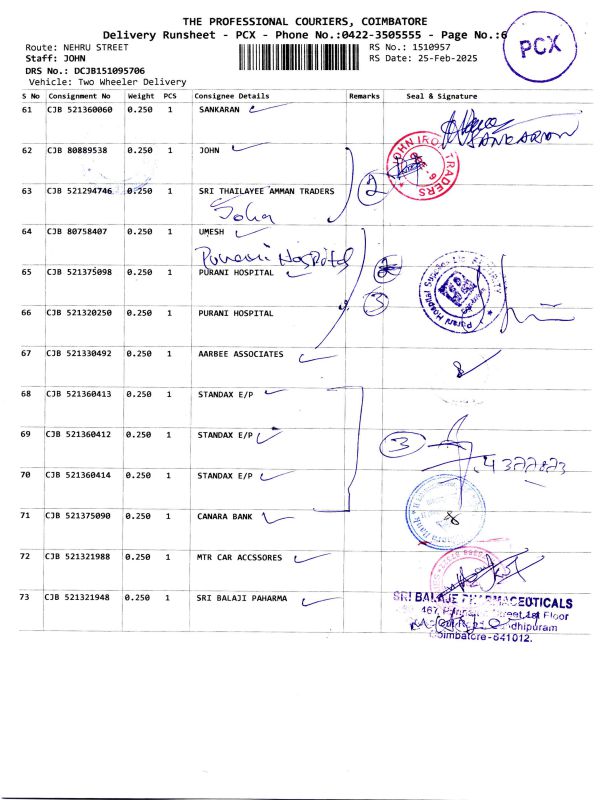 THE PROFESSIONAL COURIERS, COIMBATORE
Delivery Runsheet - PCX - Phone No.:0422-3505555 - Page No.:6
PCX
Route: NEHRU STREET
RS No.: 1510957
Staff: JOHN
RS Date: 25-Feb-2025
DRS No.: DCJB151095706
Vehicle: Two Wheeler Delivery
S No Consignment No Weight PCS Consignee Details Remarks Seal & Signature
61 CJB 521360060 0.250 1 SANKARAN
SANKARAN
62 CJB 80889538 0.250 1 JOHN
JOHN IRON TRADERS
63 CJB 521294746 0.250 1 SRI THAILAYEE AMMAN TRADERS 2
John
64 CJB 80758407 0.250 1 UMESH
Purani Hospital
65 CJB 521375098 0.250 1 PURANI HOSPITAL
Purani Hospital SECURITY
66 CJB 521320250 0.250 1 PURANI HOSPITAL 3
67 CJB 521330492 0.250 1 AARBEE ASSOCIATES
68 CJB 521360413 0.250 1 STANDAX E/P
69 CJB 521360412 0.250 1 STANDAX E/P 3
70 CJB 521360414 0.250 1 STANDAX E/P
71 CJB 521375090 0.250 1 CANARA BANK
Bank
72 CJB 521321988 0.250 1 MTR CAR ACCSSORES
73 CJB 521321948 0.250 1 SRI BALAJI PAHARMA
SRI BALAJE PHARMACEUTICALS
467, Street, 1st Floor
Coimbatore-641012.